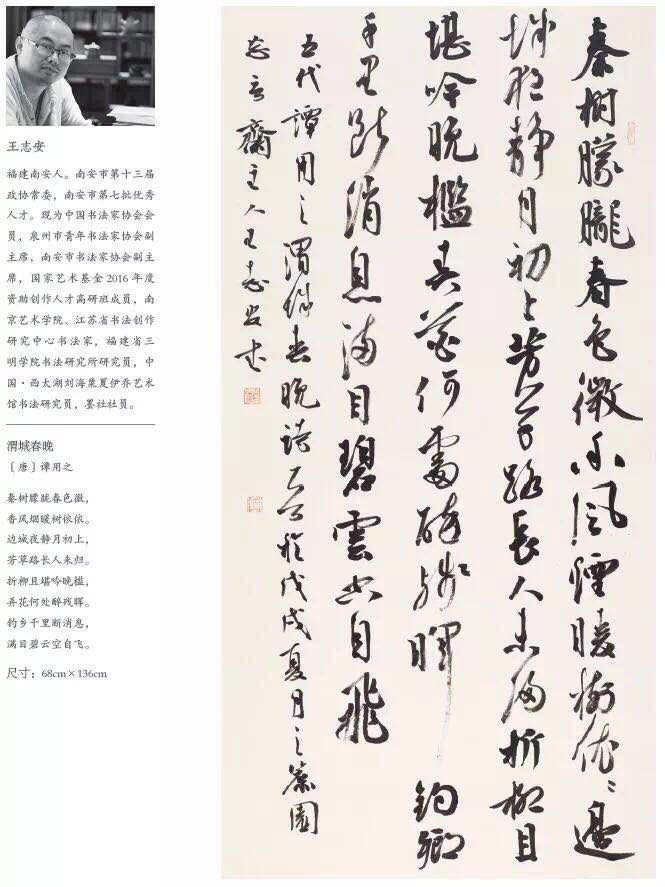 王志安
福建南安人。南安市第十三届
政协常委，南安市第七批优秀
人才。现为中国书法家协会会
员，泉州市青年书法家协会副
主席，南安市书法家协会副主
席，国家艺术基金 2016 年度
资助创作人才高研班成员，南
京艺术学院、江苏省书法创作
研究中心书法家，福建省三
明学院书法研究所研究员，中
国·西太湖刘海粟夏伊乔艺术
馆书法研究员，墨社社员。
渭城春晚
［唐］谭用之
秦树朦胧春色微，
香风烟暖树依依。
边城夜静月初上，
芳草路长人未归。
折柳且堪吟晚槛，
弄花何处醉残晖。
钓乡千里断消息，
满目碧云空自飞。
尺寸：68cm×136cm
秦樹朦朧春色微香風煙暖樹依依邊
城夜静月初上芳草路長人未歸折柳且
堪吟晚檻弄花何處醉殘暉 釣鄉
千里断消息滿目碧雲空自飛
五代譚用之渭城春晚詩一首於戊戌夏月之篆園
忘言齋主人王志安書